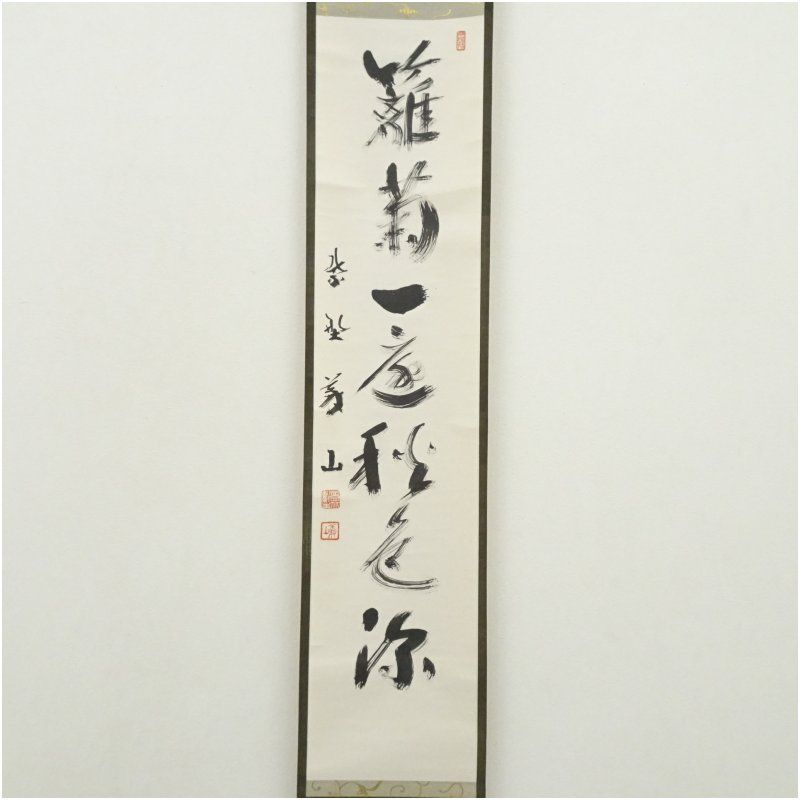 籬菊一庭秋色深
紫野義山